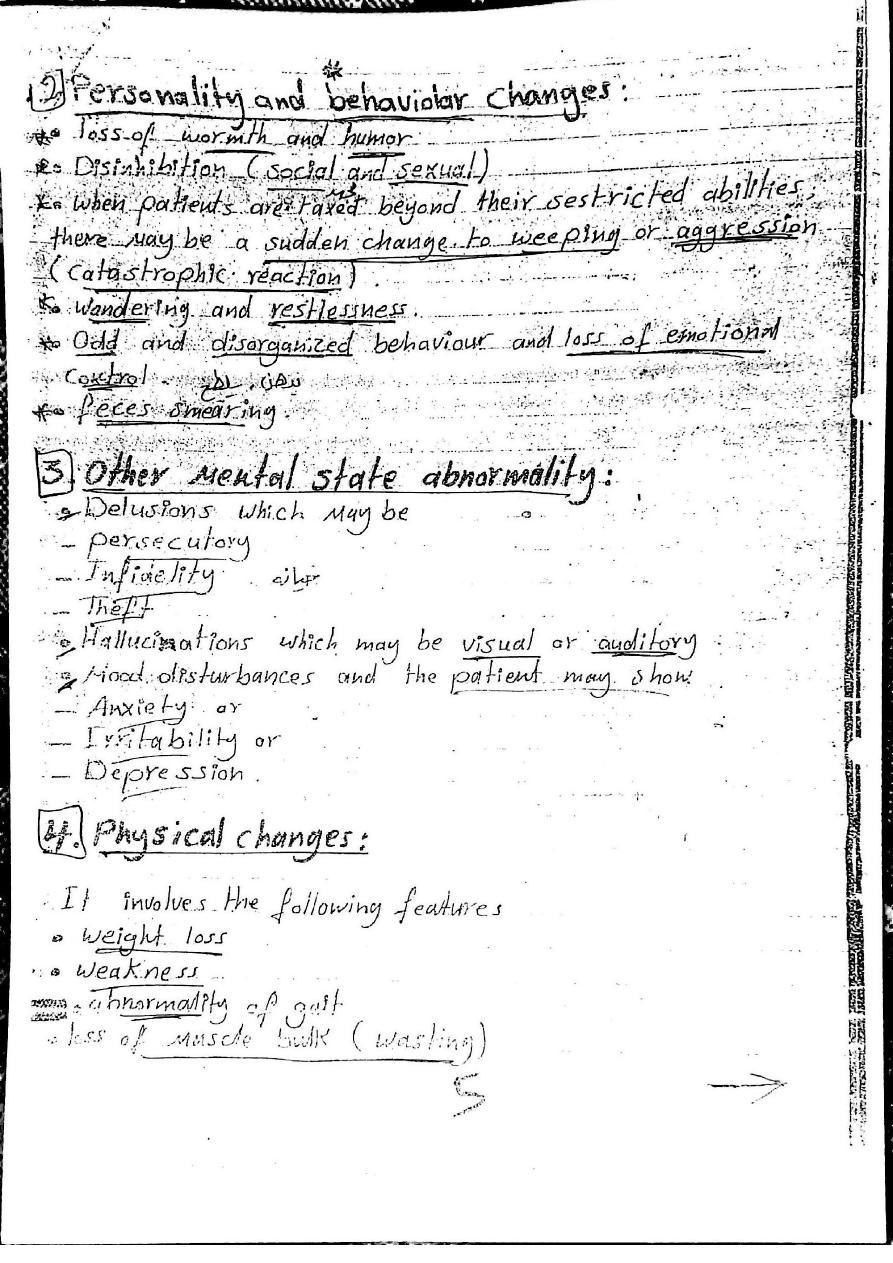 2. Personality and behaviolar changes:
loss of wormth and humor
Disinhibition (social and sexual)
when patients are taxed beyond their sestricted abilities,
there may be a sudden change to weeping or aggression
(catastrophic reaction)
Wandering and restlessness.
Odd and disorganized behaviour and loss of emotional
Coxtrol.
feces smearing.
3. Other Mental state abnormality:
Delusions which may be
- persecutory
- Infidelity
- Theft
Hallucinations which may be visual or auditory
Mood disturbances and the patient may show
- Anxiety or
- Irritability or
- Depression.
4. Physical changes:
It involves the following features
• weight loss
• weakness
• abnormality of gait
• loss of muscle bulk (wasting)
5 →